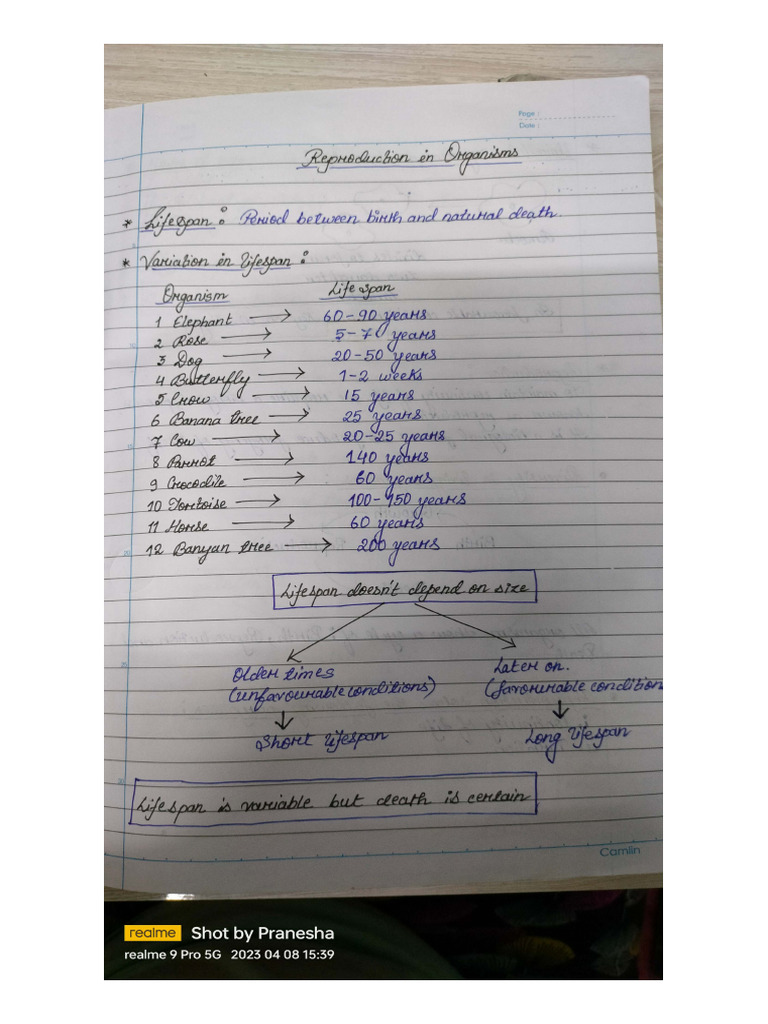 Page :
Date :
Reproduction in Organisms
* Lifespan : Period between birth and natural death.
* Variation in lifespan :
Organism Lifespan
1 Elephant → 60-90 years
2 Rose → 5-7 years
3 Dog → 20-50 years
4 Butterfly → 1-2 weeks
5 Crow → 15 years
6 Banana tree → 25 years
7 Cow → 20-25 years
8 Parrot → 140 years
9 Crocodile → 60 years
10 Tortoise → 100-150 years
11 Horse → 60 years
12 Banyan tree → 200 years
Lifespan doesn't depend on size
Older times Later on.
(unfavourable conditions) (favourable condition
Short lifespan Long lifespan
Lifespan is variable but death is certain
Camlin
realme Shot by Pranesha
realme 9 Pro 5G 2023 04 08 15:39